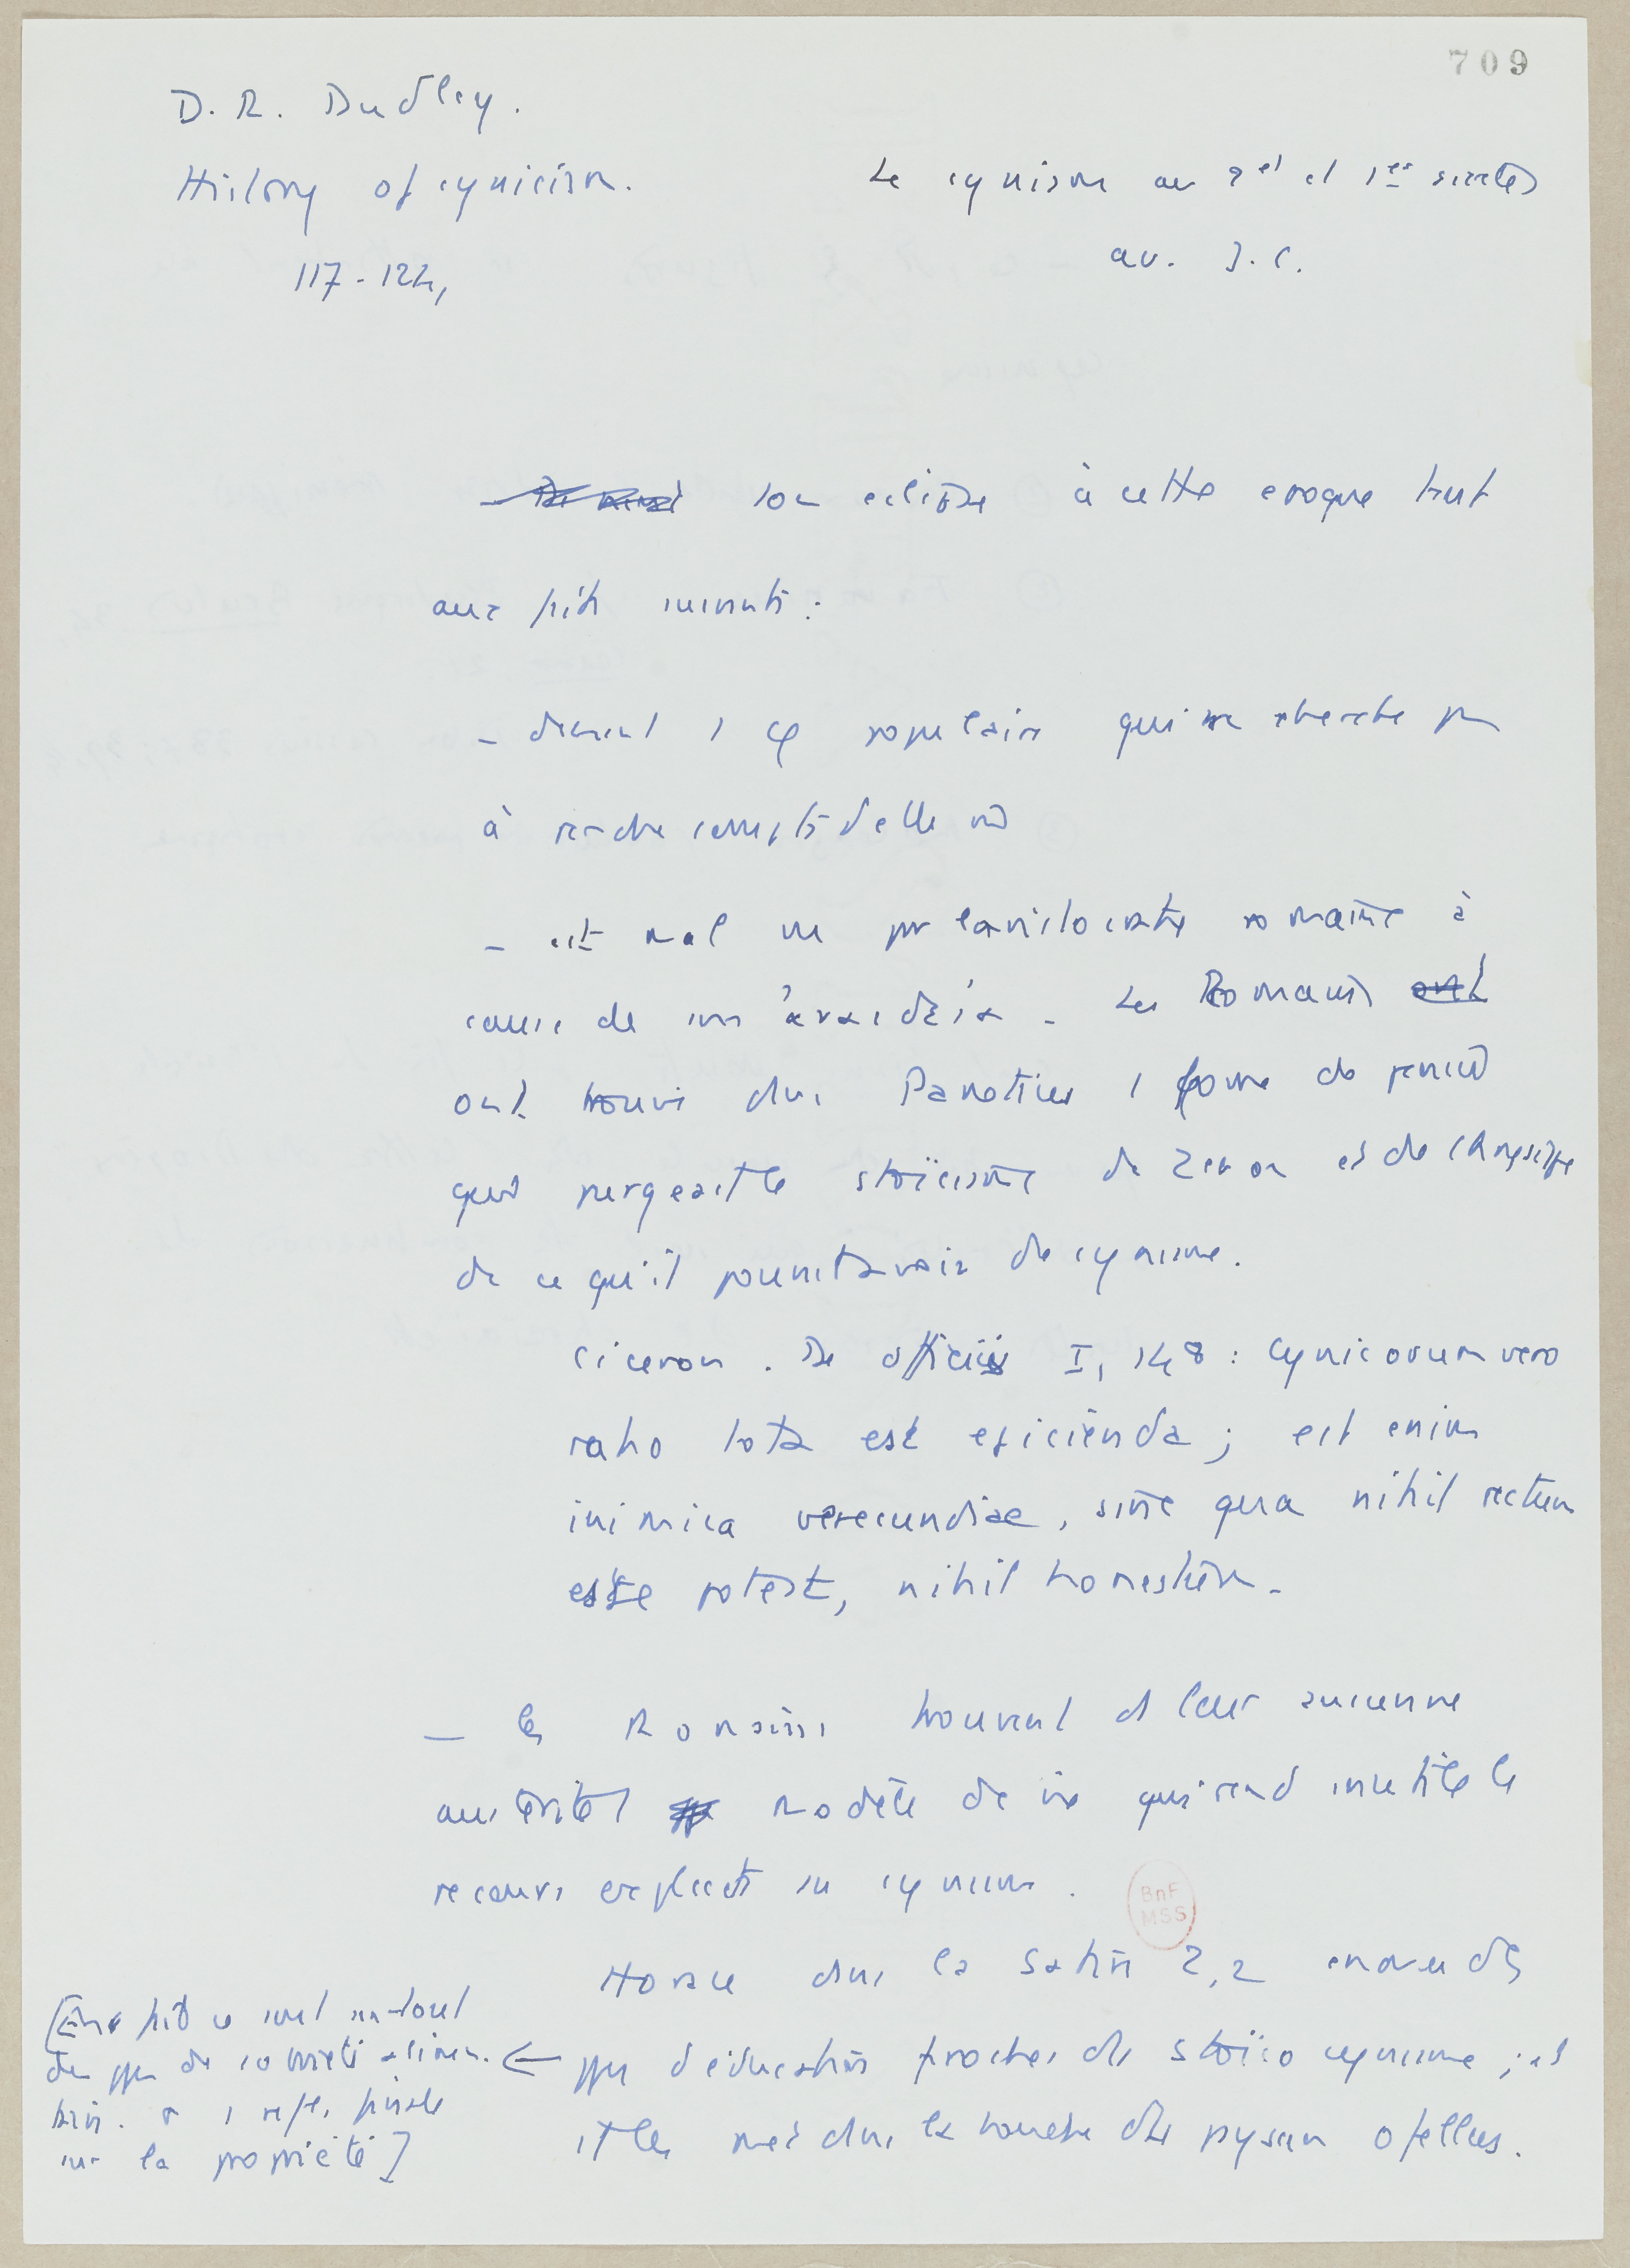 709
D. R. Dudley.
History of cynicism.
117-124,
Le cynisme au 2e et 1er siecles
av. J. C.
son eclipse à cette epoque tient
aux faits suivants :
- devient 1 φ populaire qui ne cherche pas
à rendre compte d'elle
- est mal vu par l'aristocratie romaine à
cause de son ἀναιδεία - Les Romains ont
ont trouvé dans Panetius 1 forme de pensée
qui purgeait le stoïcisme de Zenon et de Chrysippe
de ce qu'il pouvait avoir de cynisme.
Ciceron . De officiis I, 148 : Cynicorum vero
ratio tota est eficienda ; est enim
inimica verecundiae, sine qua nihil rectum
esse potest, nihil honestum.
- les Romains trouvent ds leur ancienne
austérité 1 modèle de vie qui rend inutile le
recours explicite au cynisme .
BnF
MSS
Horace dans la Satire 2,2 des
d'éducation proches du stoïco cynisme ; et
il les met dans la bouche du paysan Ofellus.
[En fait ce sont surtout
des de sobriété alimen-
taire. et 1 finale
sur la propriété]